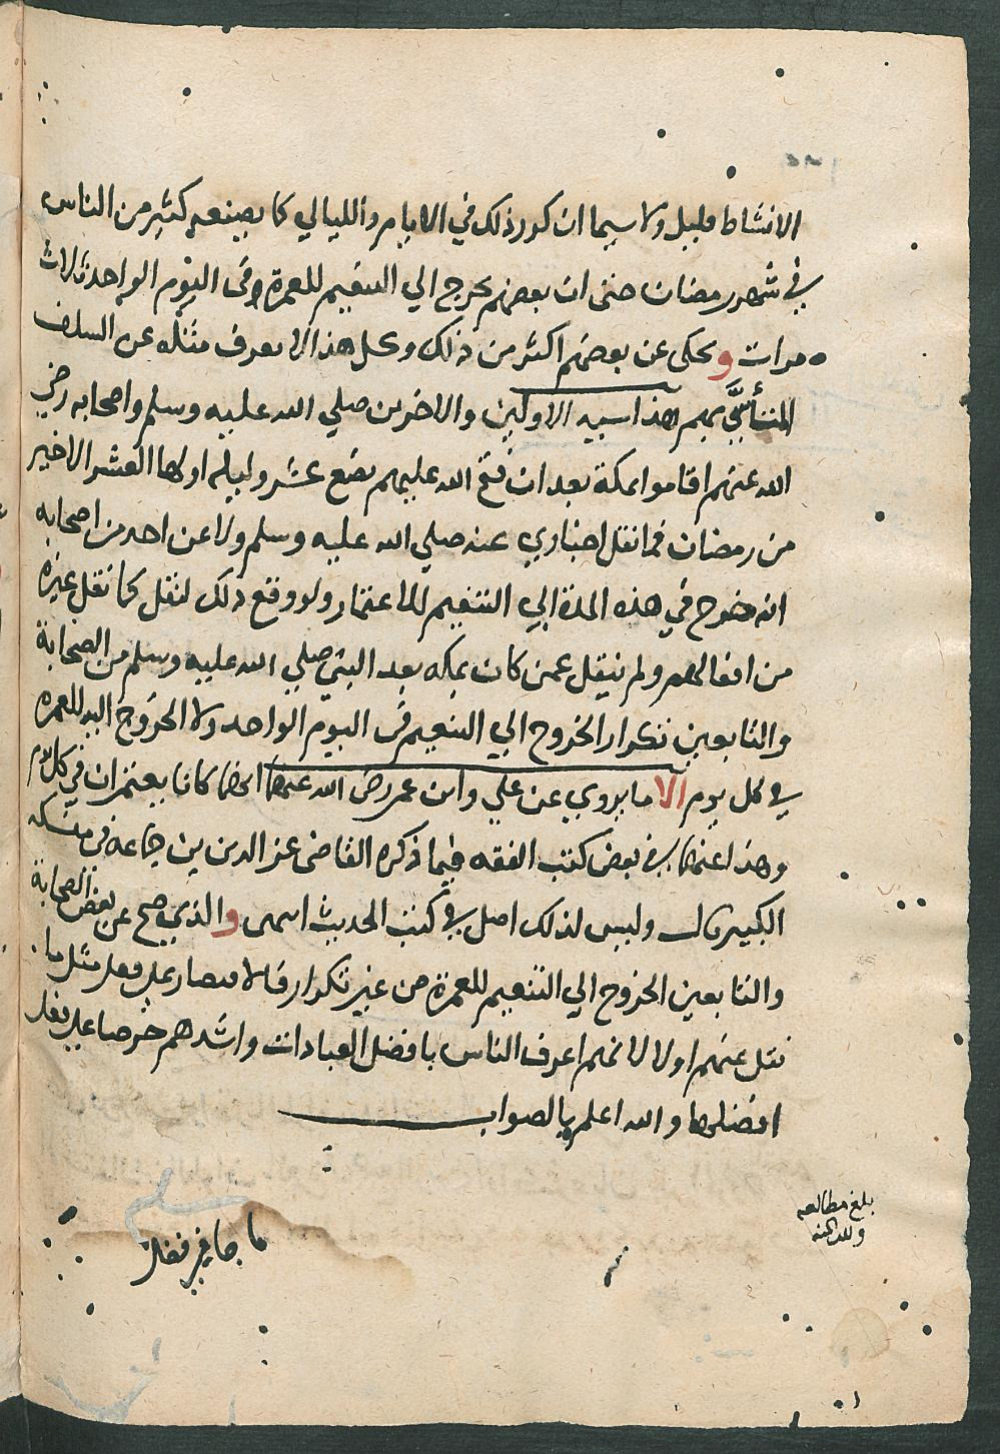 الانشاط قليل ولا سيما ان كور ذلك في الايام والليالي كما يصنعه كثير من الناس
في شهر رمضان حتى ان بعضهم يخرج الي التنعيم للعمرة في اليوم الواحد ثلاث
مرات ويحكى عن بعضهم اكثر من ذلك وكل هذا لا يعرف مثله عن السلف
المتأسَّي بهم هذا سيد الاولين والاخرين صلي الله عليه وسلم واصحابه رضي
الله عنهم اقاموا بمكة بعد ان فتح الله عليهم بضع عشر وليلة اولها العشر الاخير
من رمضان فما نقل اخباري عنه صلي الله عليه وسلم ولا عن احد من اصحابه
انه خرج في هذه المدة الي التنعيم للاعتمار ولو وقع ذلك لنقل كما نقل غيره
من افعالهم ولم ينقل عمن كان بمكه بعد النبي صلي الله عليه وسلم من الصحابة
والتابعين تكرار الخروج الي التنعيم في اليوم الواحد ولا الخروج اليه للعمره
في كل يوم الا ما يروي عن علي وابن عمر رضي الله عنهما انهما كانا يعتمران في كل يوم
وهذا عنهما في بعض كتب الفقه فيما ذكره القاضي عز الدين بن جماعه في منسكه
الكبير قال وليس لذلك اصل في كتب الحديث انتهى والذي صح عن بعض الصحابة
والتابعين الخروج الي التنعيم للعمرة من غير تكرار فالاقتصار علي فعل مثل ما
نقل عنهم اولا لانهم اعرف الناس بافضل العبادات واشدهم حرصا علي فعل
افضلها والله اعلم بالصواب
بلغ مطالعه
ما جا في فضل